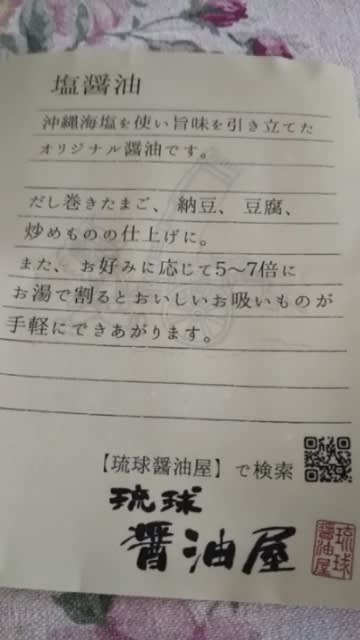 塩醤油
沖縄海塩を使い旨味を引き立てた
オリジナル醤油です。
だし巻きたまご、納豆、豆腐、
炒めものの仕上げに。
また、お好みに応じて5〜7倍に
お湯で割るとおいしいお吸いものが
手軽にできあがります。
【琉球醤油屋】で検索
琉球
醤油屋
琉球
醤油屋